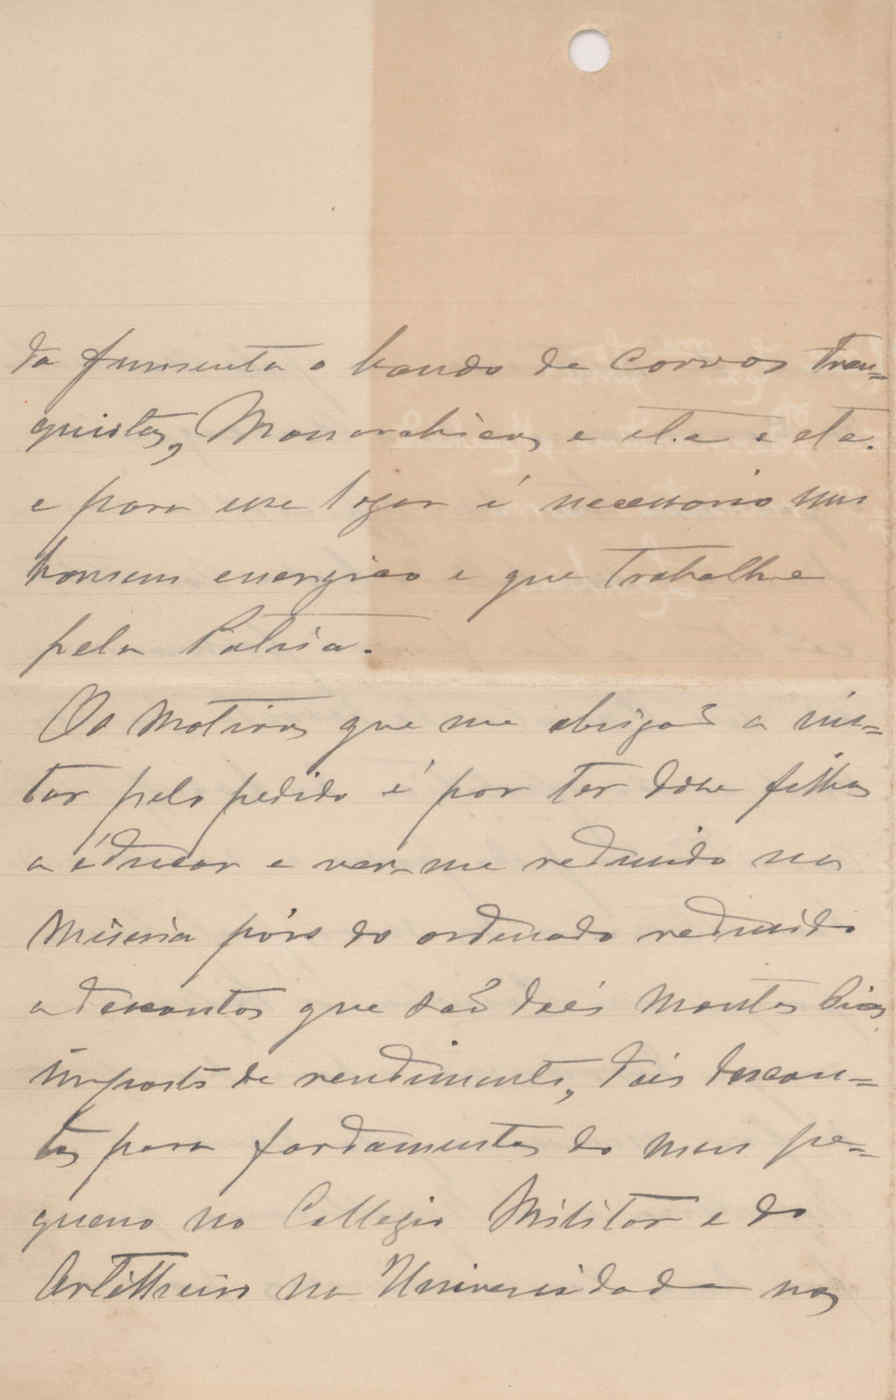 da fumenta o bando de corvos Fran=
quistas, Monarchicos e etc e etc.
e para esse logar é necessario um
homem energico e que trabalhe
pela Patria.
Os motivos que me obrigaõ a ins=
tar pelo pedido é por ter doze filhos
a éducar e ver-me reduzido na
miseria póis do ordenado reduzido
a descontos que saõ dois Montes Pios
imposto de rendimento, dois descon=
tos para fardamentos do meu pe=
queno no Collegio Militar e do
Artilheiro na Universidade nos